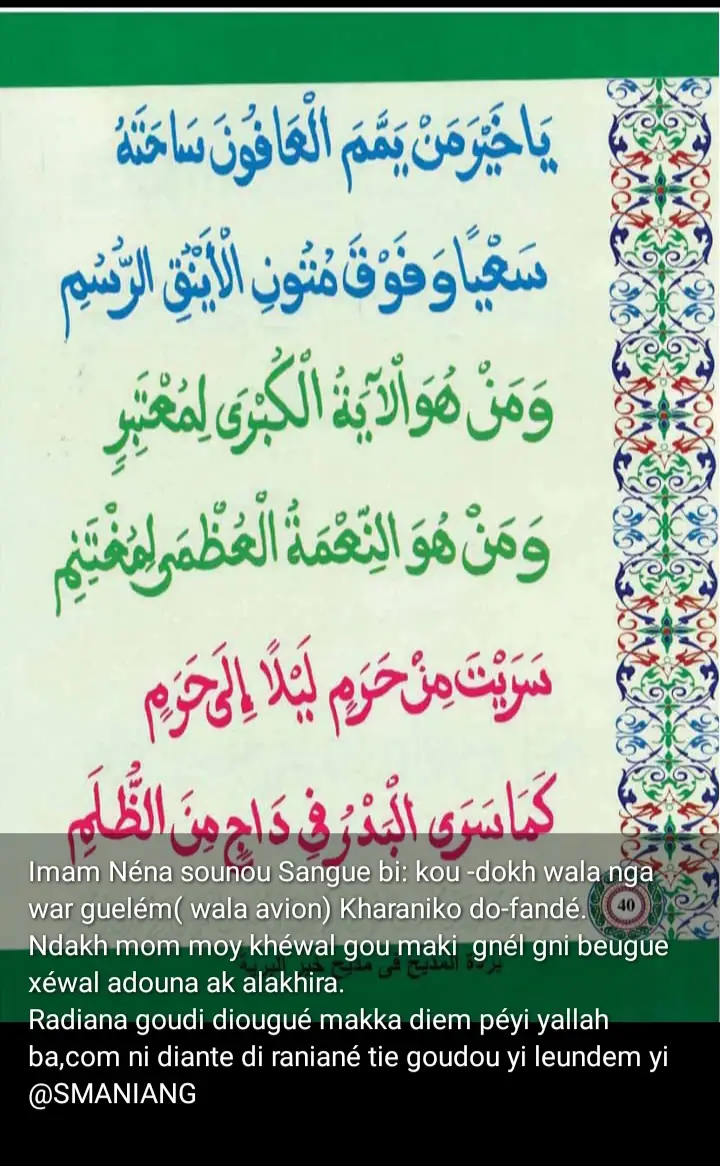 يَا خَيْرَ مَنْ يَمَّمَ الْعَافُونَ سَاحَتَهُ
سَعْيًا وَفَوْقَ مُتُونِ الْأَيْنُقِ الرُّسُمِ
وَمَنْ هُوَ الْآيَةُ الْكُبْرَى لِمُعْتَبِرٍ
وَمَنْ هُوَ النِّعْمَةُ الْعُظْمَى لِمُغْتَنِمِ
سَرَيْتَ مِنْ حَرَمٍ لَيْلًا إِلَى حَرَمٍ
كَمَا سَرَى الْبَدْرُ فِي دَاجٍ مِنَ الظُّلَمِ
Imam Néna sounou Sangue bi: kou -dokh wala nga
war guelém( wala avion) Kharaniko do-fandé.
40
Ndakh mom moy khéwal gou maki gnél gni beugue
بردة المديح في مديح خير البرية
xéwal adouna ak alakhira.
Radiana goudi diougué makka diem péyi yallah
ba,com ni diante di raniané tie goudou yi leundem yi
@SMANIANG